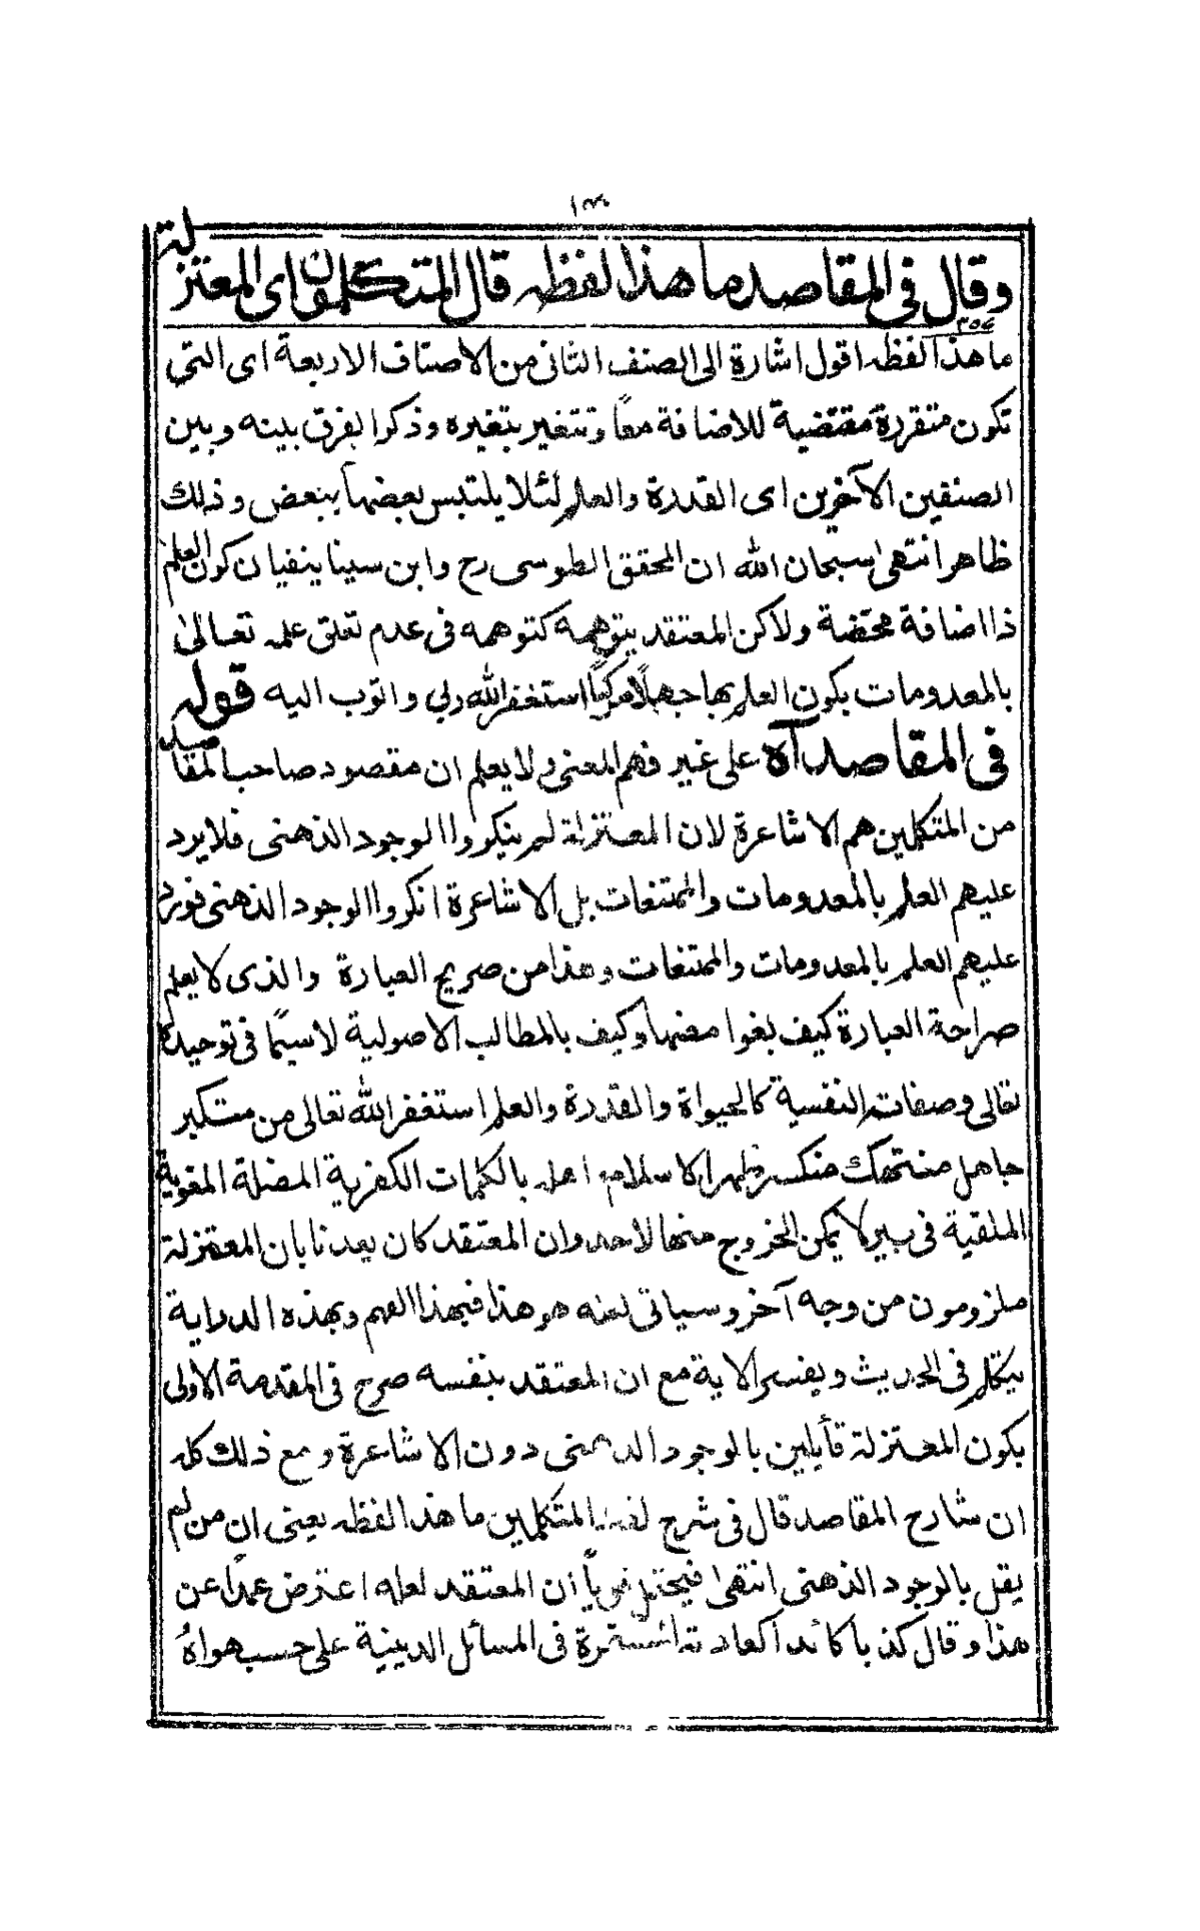 ١٣٠
وقال فى المقاصد ما هذا لفظه قال المتكلمون اى المعتزلة
ما هذا لفظه اقول اشارة الى الصنف الثانى من الاصناف الاربعة اى التي
تكون متقررة مقتضية للاضافة معًا وتتغير بتغيره وذكر الفرق بينه وبين
الصنفين الآخرين اى القدرة والعلم لئلا يلتبس بعضها ببعض وذلك
ظاهر انتهى سبحان الله ان المحقق الطوسى رح وابن سينا ينفيان كون العلم
ذا اضافة محضة ولاكن المعتقد يتوهمه كتوهمه فى عدم تعلق علمه تعالىٰ
بالمعدومات بكون العلم بها جهلًا مركبًا استغفر الله ربي واتوب اليه قوله
فى المقاصد آه على غير فهم المعنى ولا يعلم ان مقصود صاحب المقاصد
من المتكلمين هم الاشاعرة لان المعتزلة لم ينكروا الوجود الذهنى فلا يرد
عليهم العلم بالمعدومات والممتنعات بل الاشاعرة انكروا الوجود الذهنى فورد
عليهم العلم بالمعدومات والممتنعات وهذا من صريح العبارة والذى لا يعلم
صراحة العبارة كيف بغوا مضها وكيف بالمطالب الاصولية لاسيّما فى توحيده
تعالى وصفاته النفسية كالحيوة والقدرة والعلم استغفر الله تعالى من متكبر
جاهل منتهك منكسر ظهر الاسلام و اهله بالكلمات الكفرية المضلة المغوية
الملقية فى بير لا يمكن الخروج منها لاحد وان المعتقد كان يعدنا بان المعتزلة
ملزومون من وجه آخر وسياتى لعنه هو هذا فبهذا الفهم وبهذه الدراية
يتكلم فى الحديث ويفسر الاية مع ان المعتقد بنفسه صرح فى المقدمة الاولى
بكون المعتزلة قايلين بالوجود الذهنى دون الاشاعرة ومع ذلك كله
ان شارح المقاصد قال فى شرح لفظ المتكلمين ما هذا لفظه يعنى ان من لم
يقل بالوجود الذهنى انتهى فيحتمل قوياً ان المعتقد لعله اعترض عمدًا عن
هذا وقال كذبا كانه اكعادته المستمرة فى المسائل الدينية على حسب هواهُ